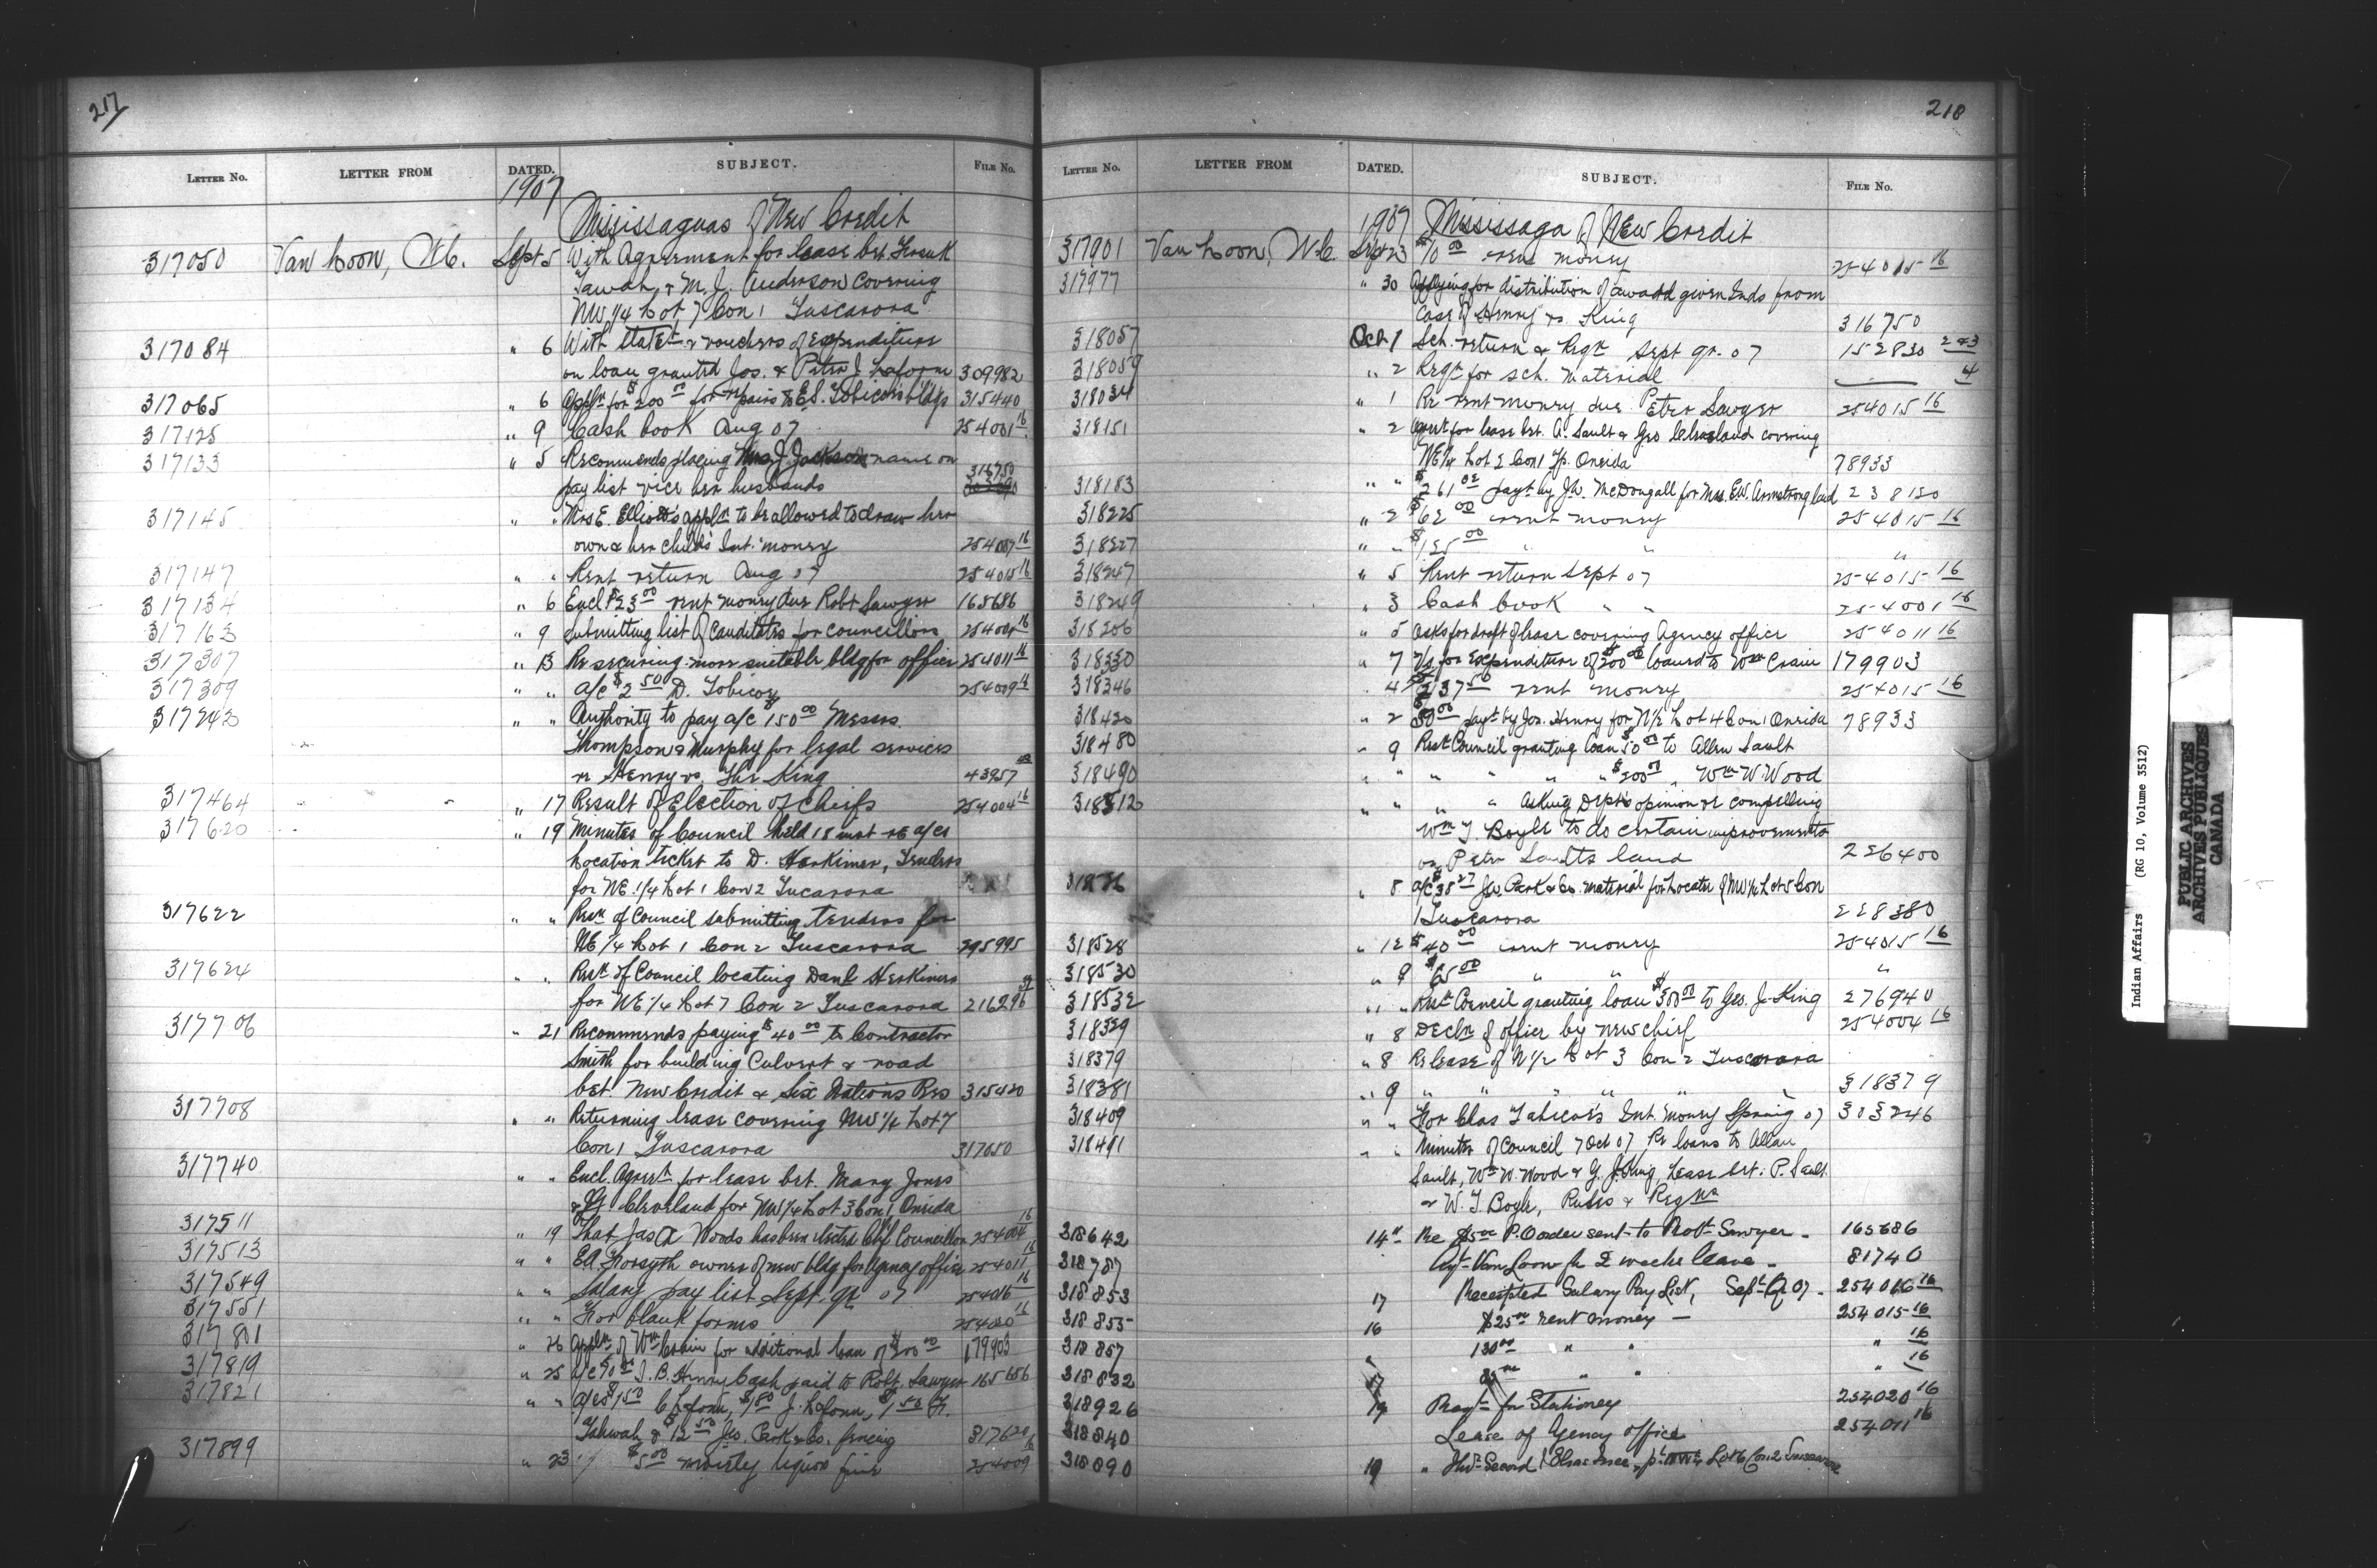 217
LETTER NO. LETTER FROM DATED. SUBJECT. FILE No.
1907 Mississaguas of New Credit
317050 Van Loon, W.C. Sept 5 With Agreement for lease bet.
Tawah & M. J. Anderson covering
NW 1/4 Lot 7 Con 1 Tuscarora
317084 " 6 With Statet & vouchers of Expenditure
on loan granted Jos. & Peter J. Laform 309982
317065 " 6 Appln for $200 00 for repairs to E.S. Tobicoe's bldgs 315440
317125 " 9 Cash book Aug 07 254001 16
317133 " 5 Recommends placing Mrs J. Jackson name on
316750
pay list vice her husbands
317145 " " Mrs E. Elliott's appln to be allowed to draw her
own & her childs Int. money 254007 16
317147 " " Rent return Aug 07 254015 16
317134 " 6 Encl $23 00 rent money due Robt Sawyer 165686
317163 " 9 Submitting list of Canditates for councillors 254004 16
317307 " 13 Re securing more suitable bldg for office 254011 16
317309 " " a/c $2 50 D. Tobicoe 254009 16
317243 " " Authority to pay a/c 150 00 Messrs.
Thompson & Murphy for legal services
re Henry vs. The King 43957
317464 " 17 Result of Election of Cheifs 254004 16
317620 " 19 Minutes of Council held 18 inst re a/cs
Location ticket to D. Herkimer, Tenders
for NE 1/4 Lot 1 Con 2 Tucarora
317622 " " Resn of Council submitting tenders for
NE 1/4 Lot 1 Con 2 Tuscarora 295995
317624 " " Resn of Council locating Danl Herkimer
for NE 1/4 Lot 7 Con 2 Tuscarora 216296
317706 " 21 Recommends paying $40 00 to Contractor
Smith for building Culvert & road
bet. New Credit & Six Nations Res 315420
317708 " " Returning lease covering NW 1/4 Lot 7
Con 1 Tuscarora 317050
317740 " " Encl. Agreet for lease bet. Mary Jones
& Cleveland for NW 1/4 Lot 3 Con 1 Oneida
317511 " 19 That Jas A Woods has been elected Chf Councillor 254004 16
317513 " " EA Forsyth owner of new bldg for Agency office 254011 16
317549 " " Salary pay list Sept. qr 07 254016 16
317551 " " For blank forms 254020 16
317801 " 26 Appln of Wm Crain for additional loan of $200 00 179903
317819 " 25 J. B. Henry Cash paid to Robt. Sawyer 165686
317821 " " a/cs $1 50 C Laform, $1 80 J. Laform, $1 50
Tahwah & $12 50 Jas. Park & Co. fencing 317620
317899 " 23 $5 00 moiety liquor fine 254009 16
218
LETTER NO. LETTER FROM DATED. SUBJECT. FILE No.
1907 Mississaga of New Credit
317901 Van Loon, W.C. Sept 23 $10 00 rent money 254015 16
317977 " 30 Applying for distribution of award given Inds from
Case of Henry vs. King 316750
318057 Oct 1 Sch. return & Reqn Sept qr. 07 152830 2&3
318059 " 2 Reqn for sch. material 4
318034 " 1 Re rent money due Peter Sawyer 254015 16
318151 " 2 Agmt for lease bet. A. Sault & Geo Cleveland covering
NE 1/4 Lot 2 Con 1 Tp. Oneida 78933
318183 " " $261 02 payt by J.W. McDougall for Mrs. E.W. Armstrong land 238120
318225 " 2 $62 00 rent money 254015 16
318227 " " $125 00 " " "
318247 " 5 Rent return Sept 07 254015 16
318249 " 3 Cash book " " 254001 16
318206 " 5 Asks for draft of lease covering Agency office 254011 16
318330 " 7 Vs for Expenditure of $200 00 loaned to Wm Crain 179903
318346 " 4 $237 50 rent money 254015 16
318420 " 2 $50 00 payt by Jos. Henry for N 1/2 Lot 4 Con 1 Oneida 78933
318480 " 9 Resn Council granting loan $50 00 to Allen Sault
318490 " " " " " " $200 00 " Wm W. Wood
318512 " " " " Asking Dept's opinion re compelling
Wm J. Boyle to do certain improvements
on Peter Saults land 226400
" 8 a/c $38 27 Jas. Park & Co. material for Locatee of NW 1/4 Lot 5 Con
1 Tuscarora 228380
318528 " 12 $40 00 rent money 254015 16
318530 " 9 $65 00 " " "
318532 " " Resn Council granting loan $300 00 to Geo. J. King 276940
318329 " 8 Decln of office by new chief 254004 16
318379 " 8 Re lease of N 1/2 Lot 3 Con 2 Tuscarora
318381 " 9 " " " " " 318379
318409 " " For Chas Tobicoe's Int. Money Spring 07 303246
318491 " " Minutes of Council 7 Oct 07 Re loans to Allan
Sault, Wm W. Wood & G. J. King, Lease bet: P. Sault
& W. J. Boyle, Rules & Regns
318642 14" Re $5 00 P. Order sent to Robt Sawyer - 165686
318787 Agt Van Loon for 2 weeks leave - 81740
318853 17 Receipted Salary Pay List, Sept Q 07 - 254016 16
318855 16 $25 00 rent money - 254015 16
318857 " 130 00 " " " 16
318832 17 " " " 16
318926 19 Reqn for Stationery 254020 16
318840 Lease of Agency office 254011 16
318890 19 " Lot 6 Con. 2 Tuscarora
Indian Affairs (RG 10, Volume 3512)
PUBLIC ARCHIVES
ARCHIVES PUBLIQUES
CANADA